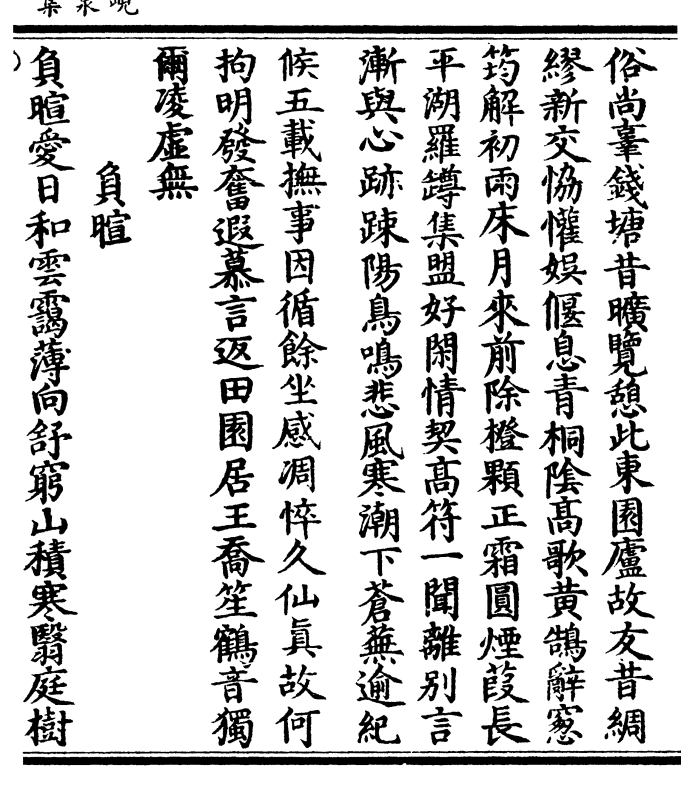 峴泉集
俗尚臺錢塘昔曠覽憩此東園廬故友昔綢
繆新交恊懽娛偃息青桐陰髙歌黄鵠辭窻
筠解初雨床月來前除橙顆正霜圓煙葭長
平湖羅罇集盟好閑情契髙符一聞離别言
漸與心跡踈陽鳥鳴悲風寒潮下蒼蕪逾紀
候五載撫事因循餘坐感凋悴久仙眞故何
拘明發奮遐慕言返田園居王喬笙鶴音獨
爾凌虛無
負暄
負暄愛日和雲靄薄向舒窮山積寒翳庭樹